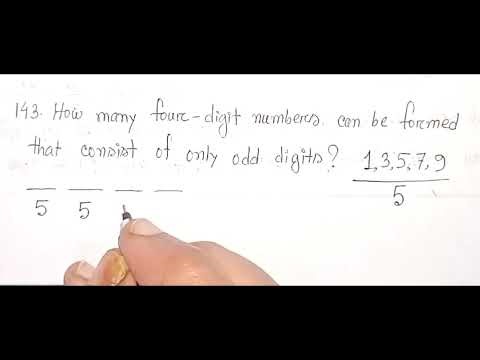 143. How many four-digit numbers can be formed
that consist of only odd digits? 1,3,5,7,9
5
5 5